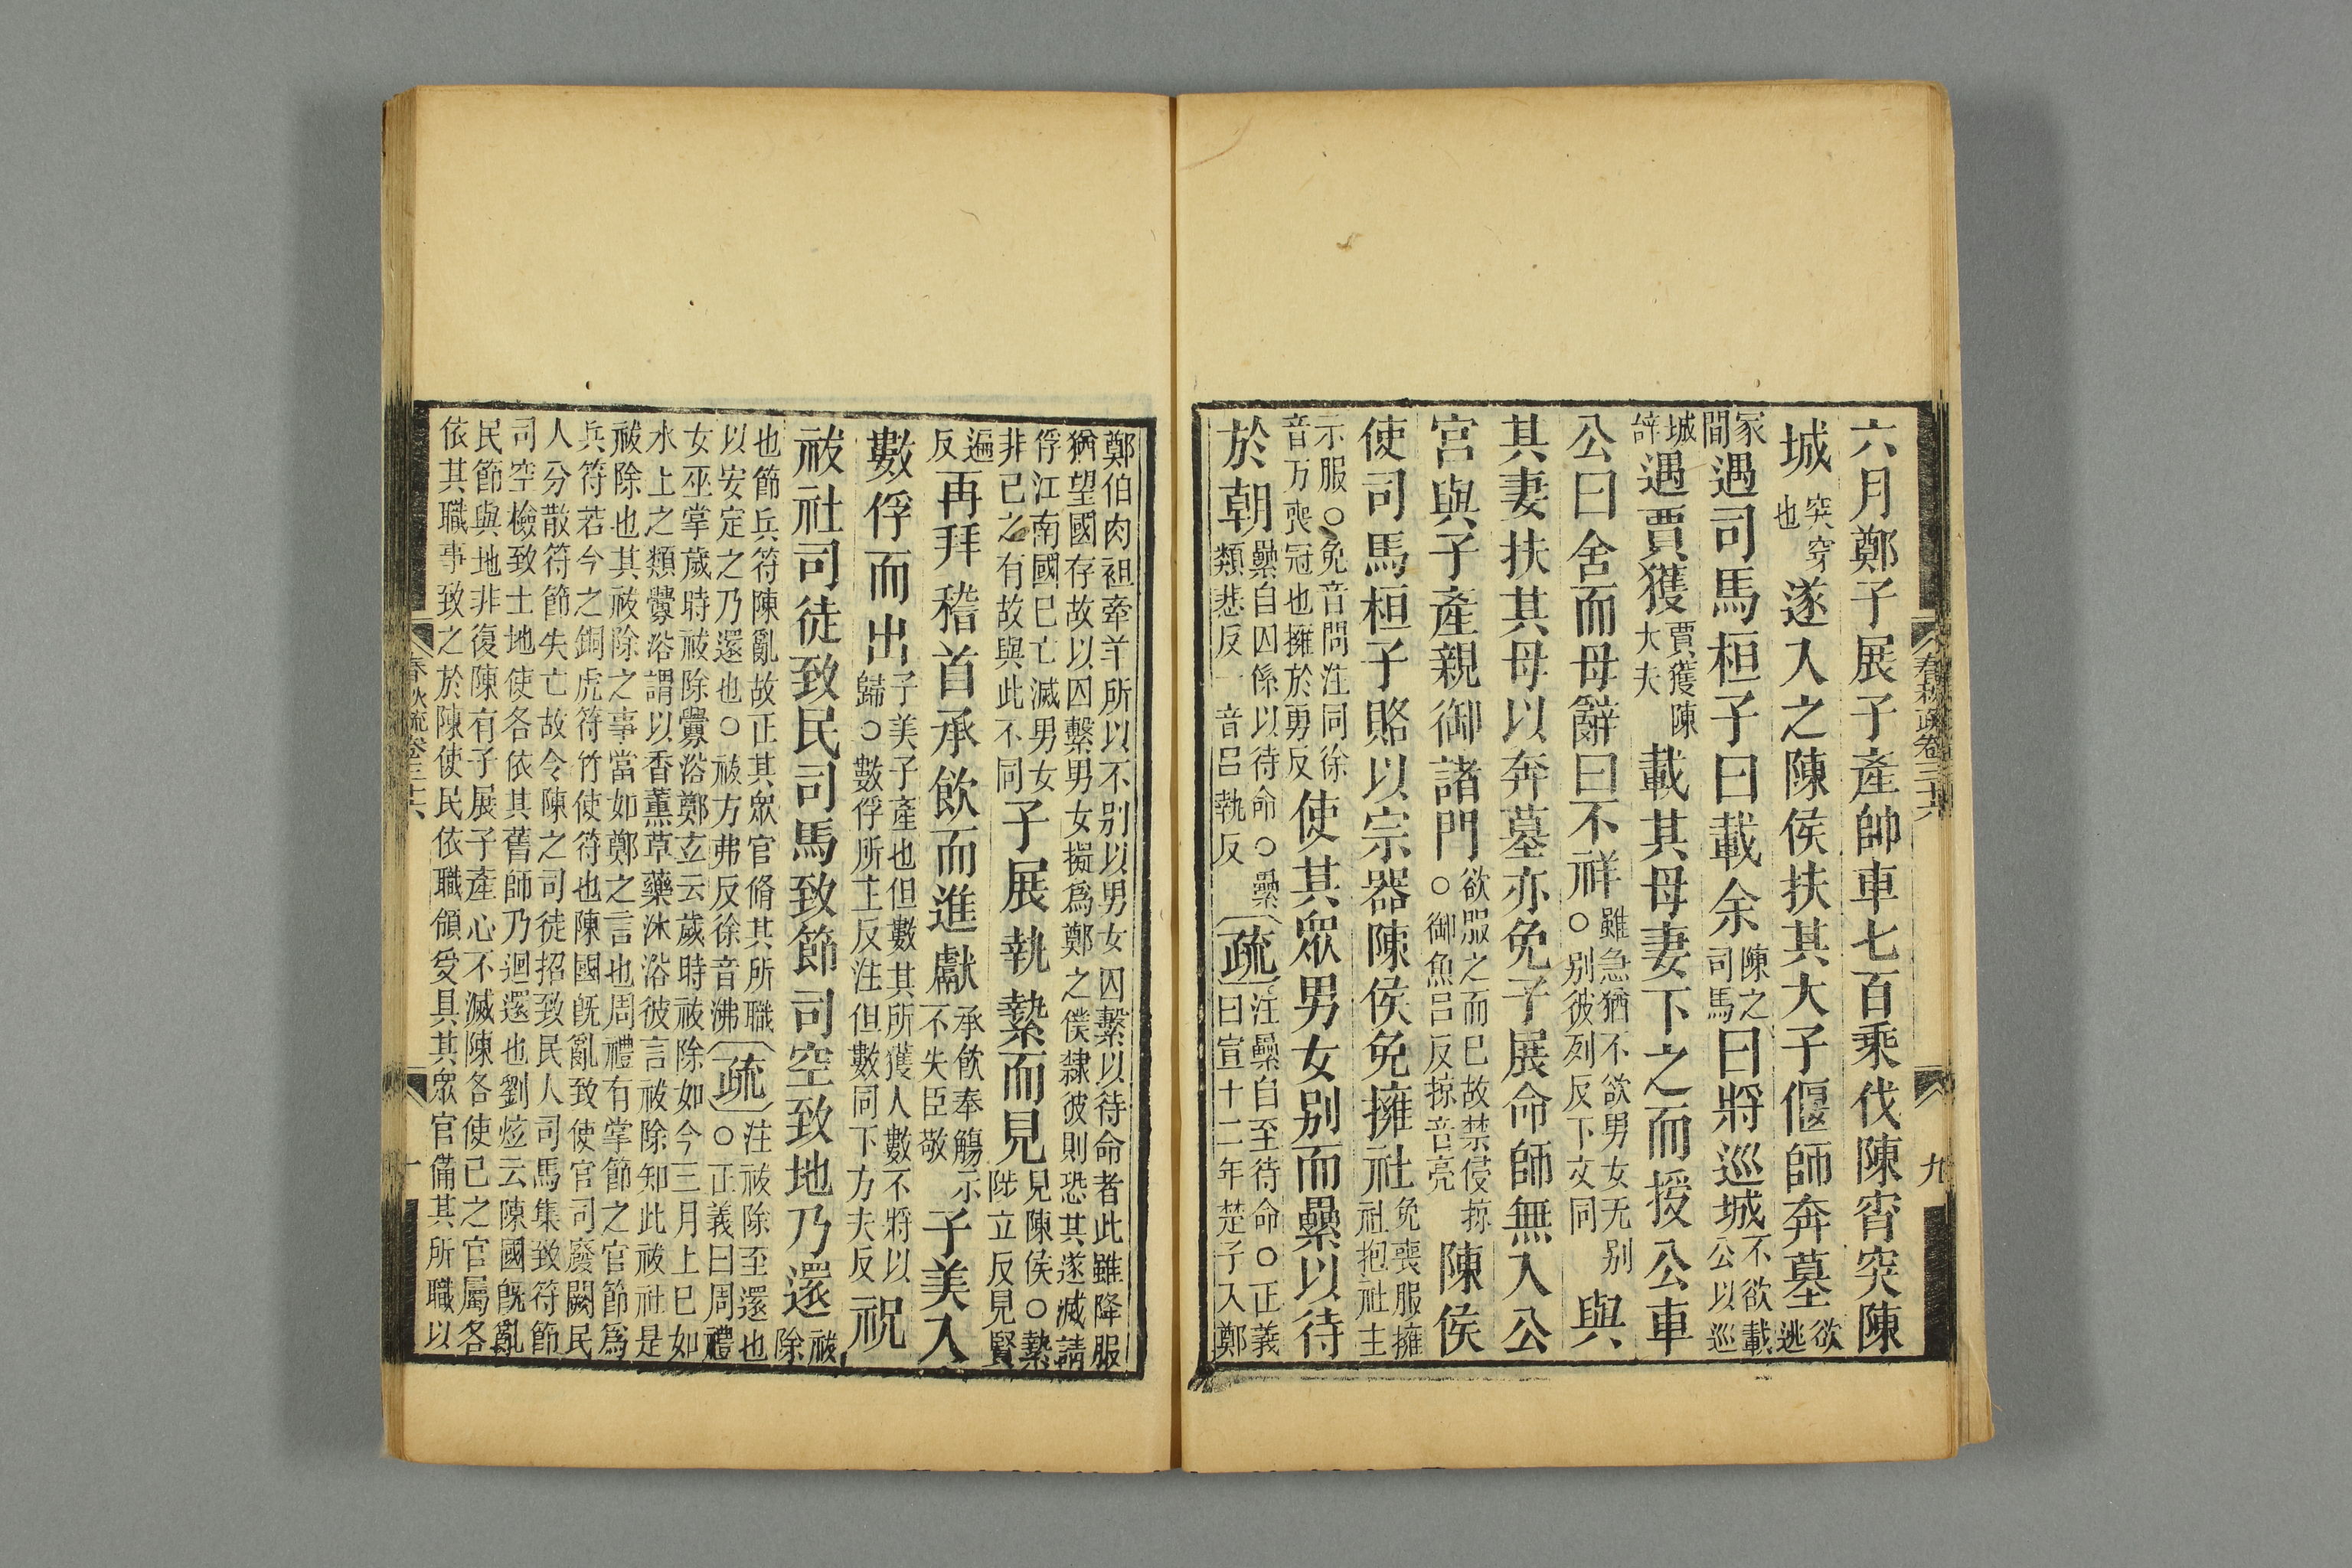 六月鄭子展子產帥車七百乘伐陳宵突陳
城突穿也遂入之陳侯扶其大子偃師奔墓欲逃
冢間遇司馬桓子曰載余陳之司馬曰將巡城不欲載公以巡
城辭遇賈獲賈獲陳大夫載其母妻下之而授公車
公曰舍而母辭曰不祥雖急猶不欲男女无别○别彼列反下文同與
其妻扶其母以奔墓亦免子展命師無入公
宮與子產親御諸門欲服之而已故禁侵掠○御魚呂反掠音亮陳侯
使司馬桓子賂以宗器陳侯免擁社免喪服擁社抱社主
示服○免音問注同徐音万喪冠也擁於勇反使其眾男女别而纍以待
於朝纍自囚係以待命○纍類悲反一音呂執反疏注纍自至待命○正義曰宣十二年楚子入鄭
鄭伯肉袒牽羊所以不别以男女囚繫以待命者此雖降服
猶望國存故以囚繫男女擬為鄭之僕隸彼則恐其遂滅請
俘江南國已亡滅男女非已之有故與此不同子展執縶而見見陳侯○縶陟立反見賢
遍反再拜稽首承飲而進獻承飲奉觴示不失臣敬子美入
數俘而出子美子產也但數其所獲人數不將以歸○數俘所主反注但數同下方夫反祝
祓社司徒致民司馬致節司空致地乃還祓除
也節兵符陳亂故正其眾官脩其所職以安定之乃還也○祓方弗反徐音沸疏注祓除至還也○正義曰周禮
女巫掌歲時祓除釁浴鄭玄云歲時祓除如今三月上巳如
水上之類釁浴謂以香薰草藥沐浴彼言祓除知此祓社是
祓除也其祓除之事當如鄭之言也周禮有掌節之官節為
兵符若今之銅虎符竹使符也陳國既亂致使官司廢闕民
人分散符節失亡故令陳之司徒招致民人司馬集致符節
司空檢致土地使各依其舊師乃迴還也劉炫云陳國既亂
民節與地非復陳有子展子產心不滅陳各使已之官屬各
依其職事致之於陳使民依職領受具其眾官備其所職以
春秋疏卷三十六
九
春秋疏卷三十六
十